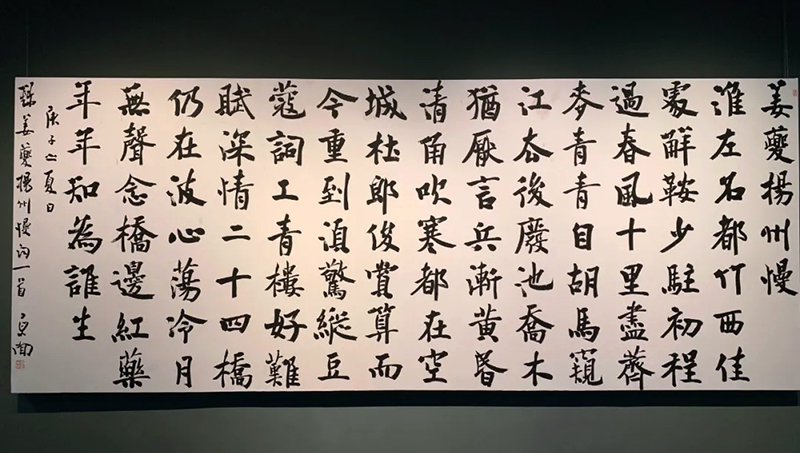 姜夔揚州慢
淮左名都竹西佳
處解鞍少駐初程
過春風十里盡薺
麥青青自胡馬窺
江去後廢池喬木
猶厭言兵漸黃昏
清角吹寒都在空
城杜郎俊賞算而
今重到須驚縱豆
蔻詞工青樓好難
賦深情二十四橋
仍在波心蕩冷月
無聲念橋邊紅藥
年年知為誰生
庚子之夏日
姜夔揚州慢词一首